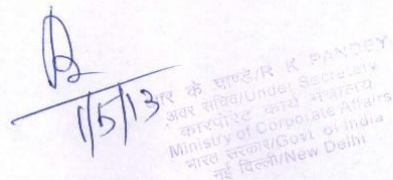 1/5/13
आर के पाण्डे/R K PANDEY
अवर सचिव/Under Secretary
कारपोरेट कार्य मंत्रालय
Ministry of Corporate Affairs
भारत सरकार/Govt. of India
नई दिल्ली/New Delhi